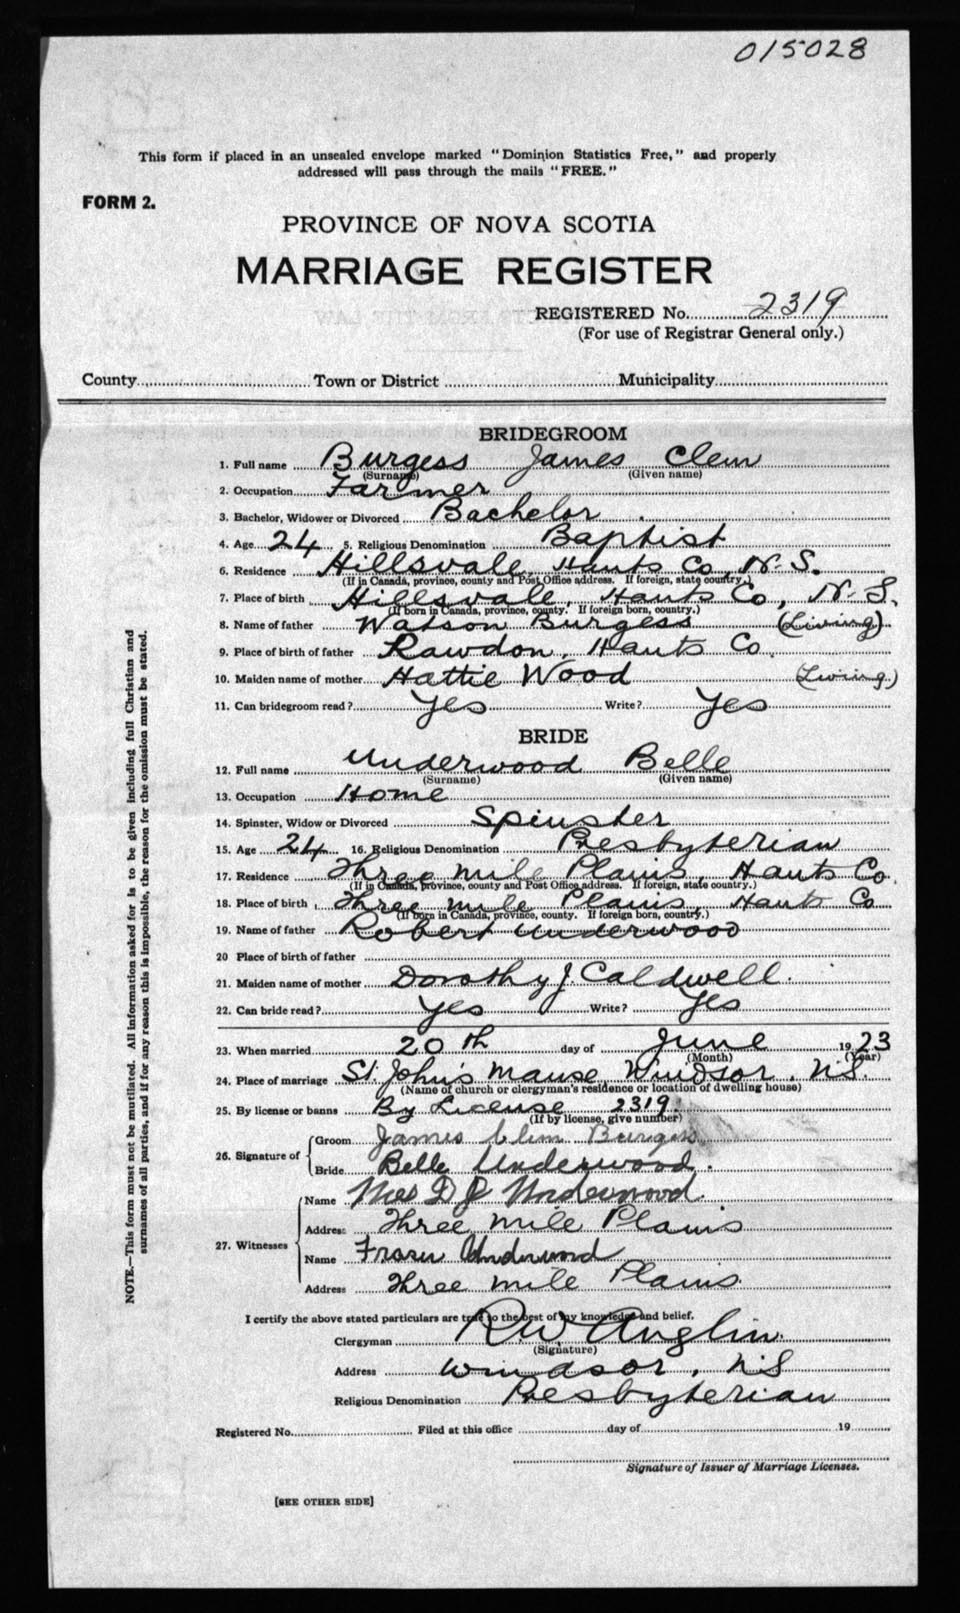 015028
This form if placed in an unsealed envelope marked "Dominion Statistics Free," and properly
addressed will pass through the mails "FREE."
FORM 2.
PROVINCE OF NOVA SCOTIA
MARRIAGE REGISTER
REGISTERED No. 2319
(For use of Registrar General only.)
County Town or District Municipality
BRIDEGROOM
1. Full name Burgess James Clem
(Surname) (Given name)
2. Occupation Farmer
3. Bachelor, Widower or Divorced Bachelor
4. Age 24 5. Religious Denomination Baptist
6. Residence Hillsvale, Hants Co, N.S.
(If in Canada, province, county and Post Office address. If foreign, state country.)
7. Place of birth Hillsvale, Hants Co, N.S.
(If born in Canada, province, county. If foreign born, country.)
8. Name of father Watson Burgess (Living)
9. Place of birth of father Rawdon, Hants Co.
10. Maiden name of mother Hattie Wood (Living)
11. Can bridegroom read? Yes Write? Yes
BRIDE
12. Full name Underwood Belle
(Surname) (Given name)
13. Occupation Home
14. Spinster, Widow or Divorced Spinster
15. Age 24 16. Religious Denomination Presbyterian
17. Residence Three Mile Plains, Hants Co.
(If in Canada, province, county and Post Office address. If foreign, state country.)
18. Place of birth Three Mile Plains, Hants Co
(If born in Canada, province, county. If foreign born, country.)
19. Name of father Robert Underwood
20 Place of birth of father
21. Maiden name of mother Dorothy J. Caldwell.
22. Can bride read? Yes Write? Yes
23. When married 20th day of June 1923
(Month) (Year)
24. Place of marriage St. John's Manse Windsor, N.S.
(Name of church or clergyman's residence or location of dwelling house)
25. By license or banns By License 2319.
(If by license, give number)
26. Signature of Groom James Clem Burgess
Bride Belle Underwood.
27. Witnesses Name Mrs D J Underwood.
Address Three Mile Plains
Name Fraser Underwood
Address Three Mile Plains.
I certify the above stated particulars are true to the best of my knowledge and belief.
Clergyman R W Anglin.
(Signature)
Address Windsor, N.S
Religious Denomination Presbyterian
Registered No. Filed at this office day of 19
Signature of Issuer of Marriage Licenses.
[SEE OTHER SIDE]
NOTE.—This form must not be mutilated. All information asked for is to be given including full Christian and
surnames of all parties, and if for any reason this is impossible, the reason for the omission must be stated.